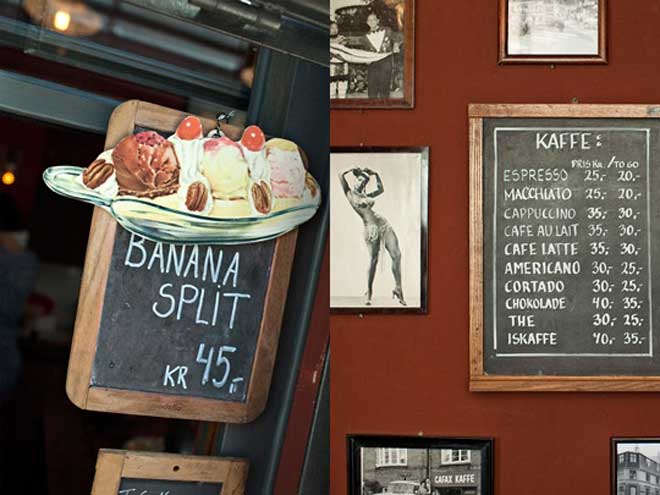 BANANA
SPLIT
KR 45,-
KAFFE:
PRIS Kr. / TO GO
ESPRESSO 25,- 20,-
MACCHIATO 25,- 20,-
CAPPUCCINO 35,- 30,-
CAFE AU LAIT 35,- 30,-
CAFE LATTE 35,- 30,-
AMERICANO 30,- 25,-
CORTADO 30,- 25,-
CHOKOLADE 40,- 35,-
THE 30,- 25,-
ISKAFFE 40,- 35,-
CAFAX KAFFE